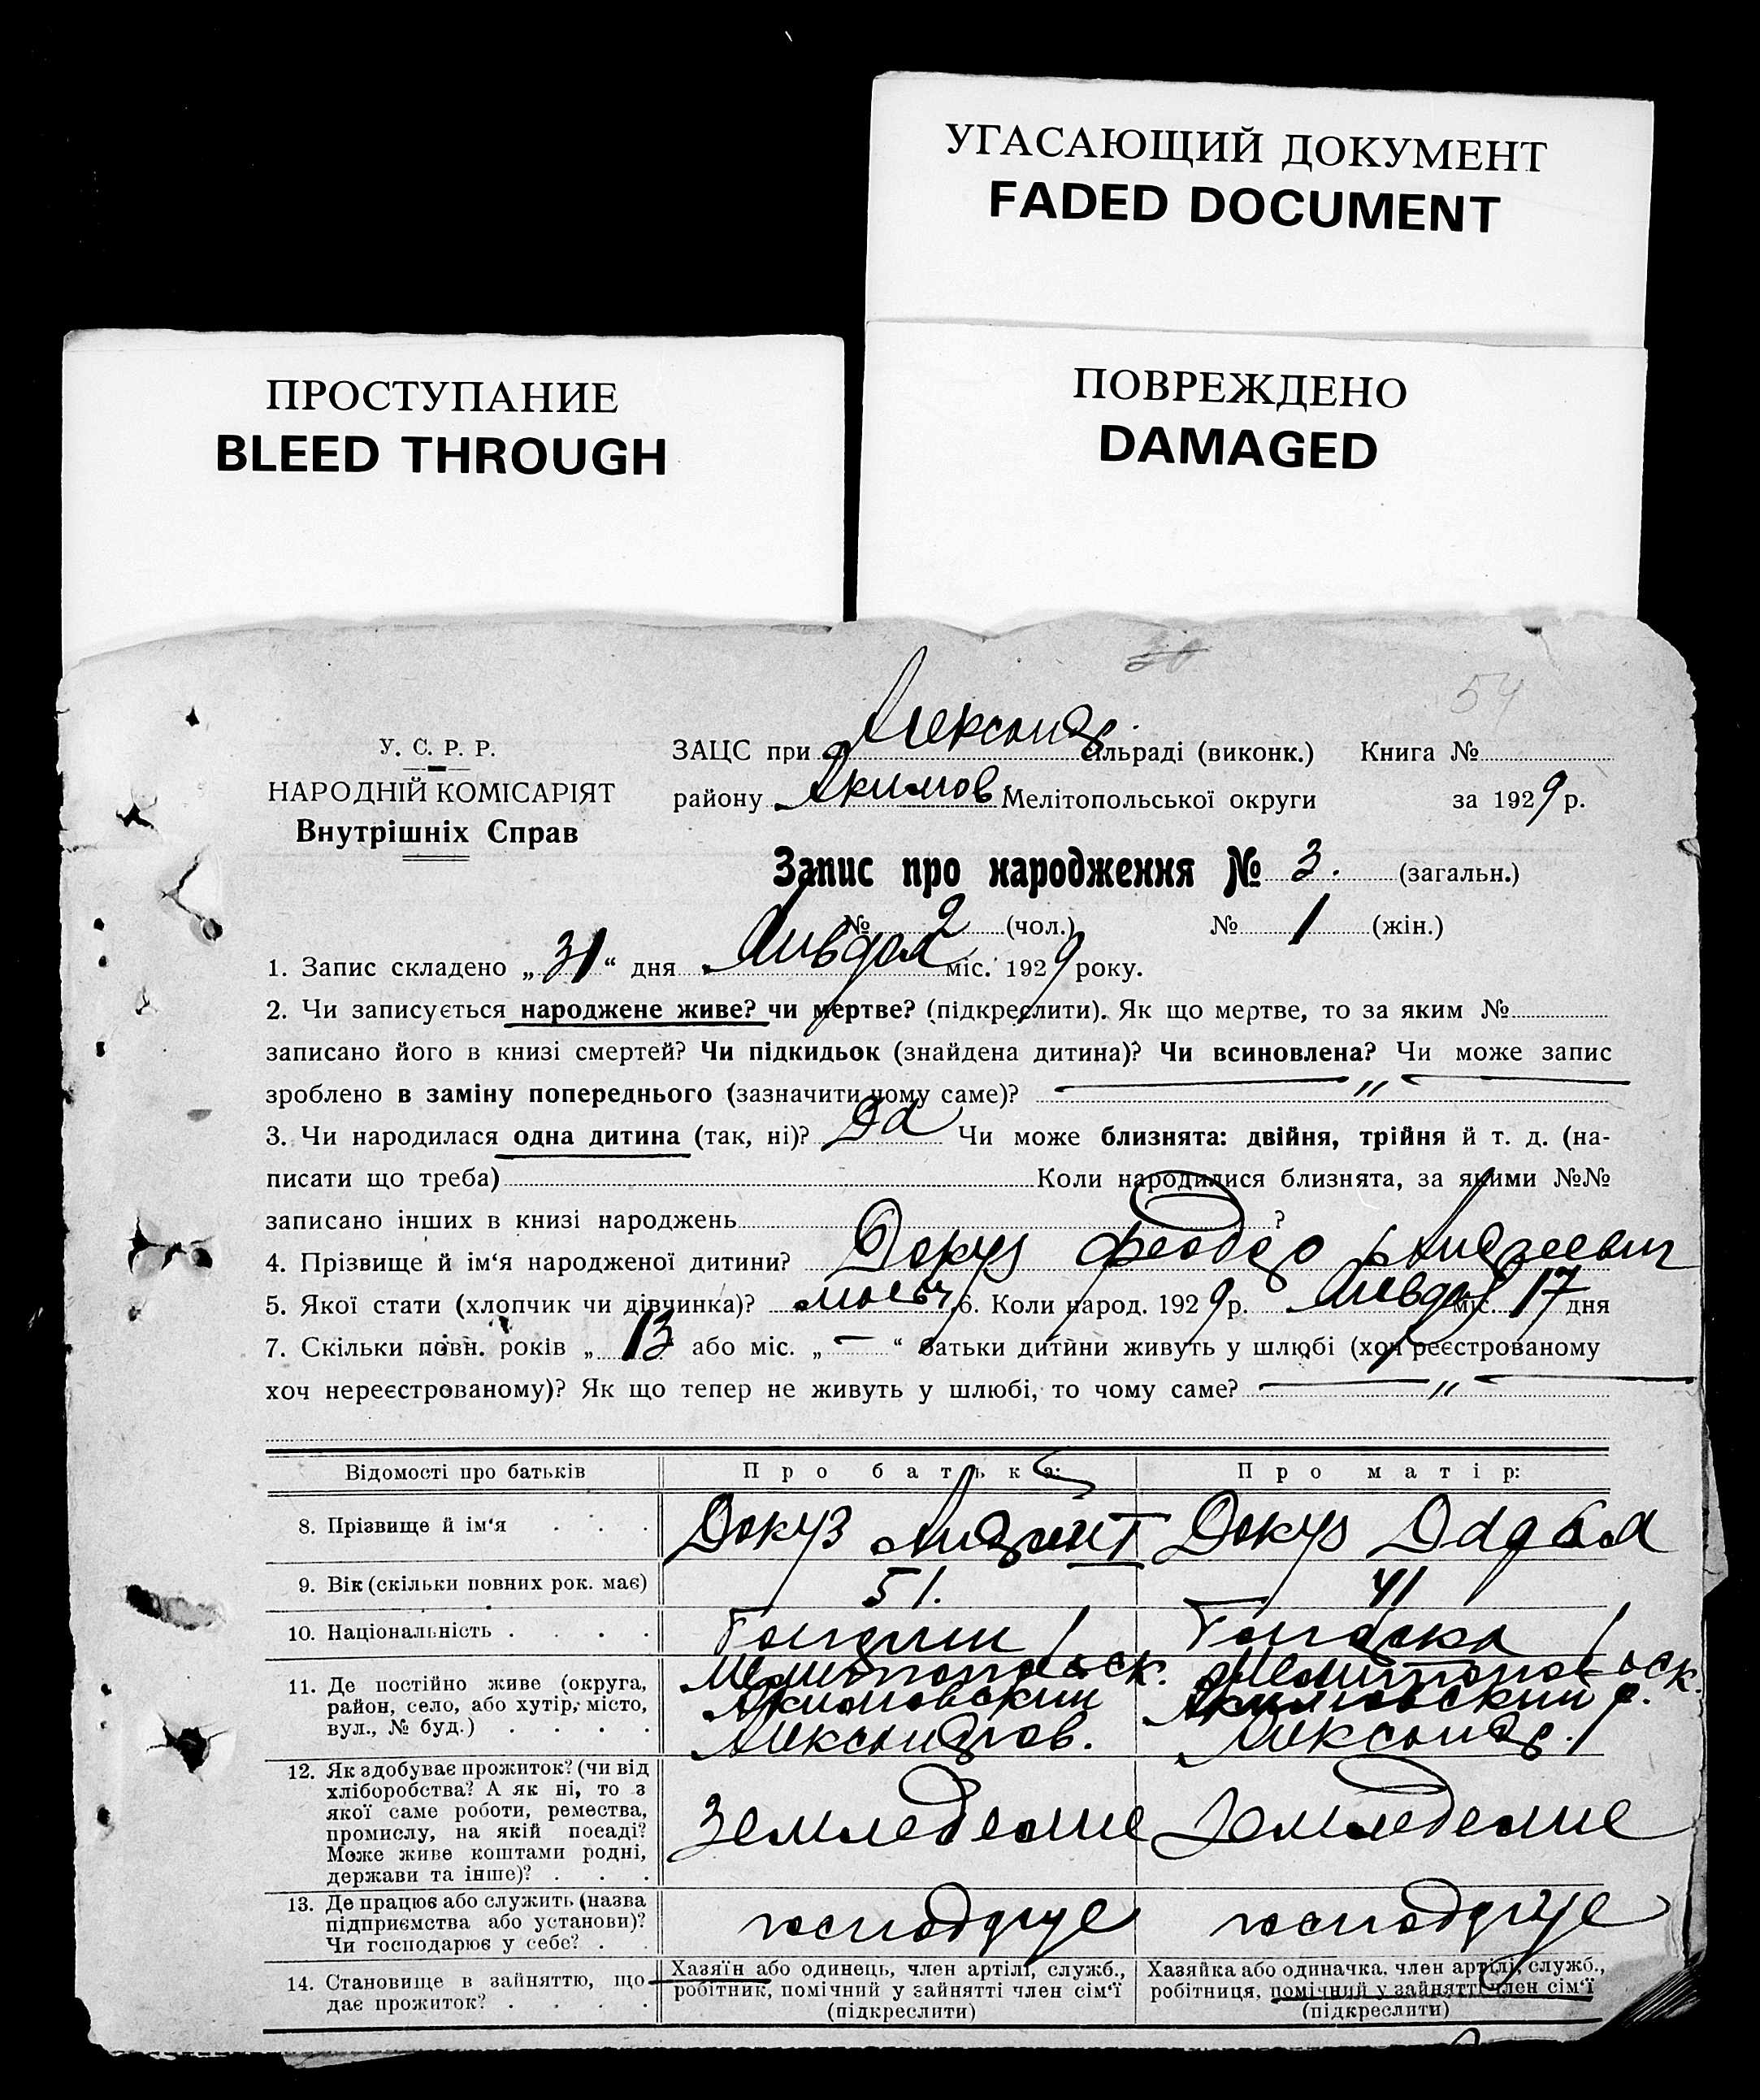 УГАСАЮЩИЙ ДОКУМЕНТ
FADED DOCUMENT
ПРОСТУПАНИЕ
BLEED THROUGH
ПОВРЕЖДЕНО
DAMAGED
54
У. С. Р. Р.
НАРОДНІЙ КОМІСАРІЯТ
Внутрішніх Справ
ЗАЦС при Александр. сільраді (виконк.) Книга №
району Акимов. Мелітопольської округи за 1929 р.
Запис про народження № 3. (загальн.)
№ 2 (чол.) № 1 (жін.)
1. Запис складено „31“ дня Января міс. 1929 року.
2. Чи записується народжене живе? чи мертве? (підкреслити). Як що мертве, то за яким №
записано його в книзі смертей? Чи підкидьок (знайдена дитина)? Чи всиновлена? Чи може запис
зроблено в заміну попереднього (зазначити чому саме)? — „ —
3. Чи народилася одна дитина (так, ні)? Да Чи може близнята: двійня, трійня й т. д. (на-
писати що треба) Коли народилися близнята, за якими №№
записано інших в книзі народжень ?
4. Прізвище й ім‘я народженої дитини? Докуз Феодор Андреевич
5. Якої стати (хлопчик чи дівчинка)? мальч. 6. Коли народ. 1929 р. Января міс. 17 дня
7. Скільки повн. років „13 або міс. „ — “ батьки дитини живуть у шлюбі (хоч реєстрованому
хоч нереєстрованому)? Як що тепер не живуть у шлюбі, то чому саме? — „ —
Відомості про батьків Про батька: Про матір:
8. Прізвище й ім‘я . . . Докуз Докуз
9. Вік (скільки повних рок. має) 51. 41
10. Національність . . . .
11. Де постійно живе (округа, Мелитопольск. Мелитопольск.
район, село, або хутір, місто, Акимовский Акимовский р.
вул., № буд.) . . . . Александров. Александр.
12. Як здобуває прожиток? (чи від
хліборобства? А як ні, то з
якої саме роботи, ремества, Земледелие Земледелие
промислу, на якій посаді?
Може живе коштами родні,
держави та інше)? . . .
13. Де працює або служить (назва
підприємства або установи)?
Чи господарює у себе? . .
14. Становище в зайняттю, що Хазяїн або одинець, член артілі, служб., Хазяйка або одиначка. член артілі, служб.,
дає прожиток? . . . . робітник, помічний у зайнятті член сім‘ї робітниця, помічний у зайнятті член сім‘ї
(підкреслити) (підкреслити)